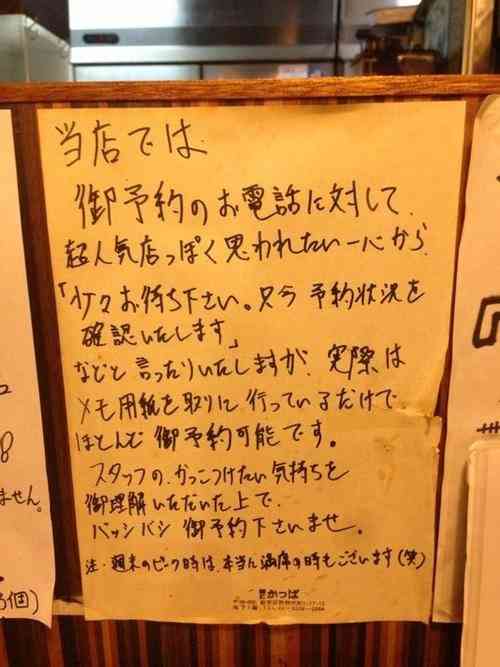 当店では
御予約のお電話に対して、
超人気店っぽく思われたい一心から
「少々お待ち下さい。只今予約状況を
確認いたします」
などと言ったりいたしますが、実際は
メモ用紙を取りに行っているだけで
ほとんど御予約可能です。
スタッフの、かっこつけたい気持ちを
御理解いただいた上で、
バッシバシ御予約下さいませ。
注・週末のピーク時は、本当に満席の時もございます(笑)
かっぱ
ません。
個)